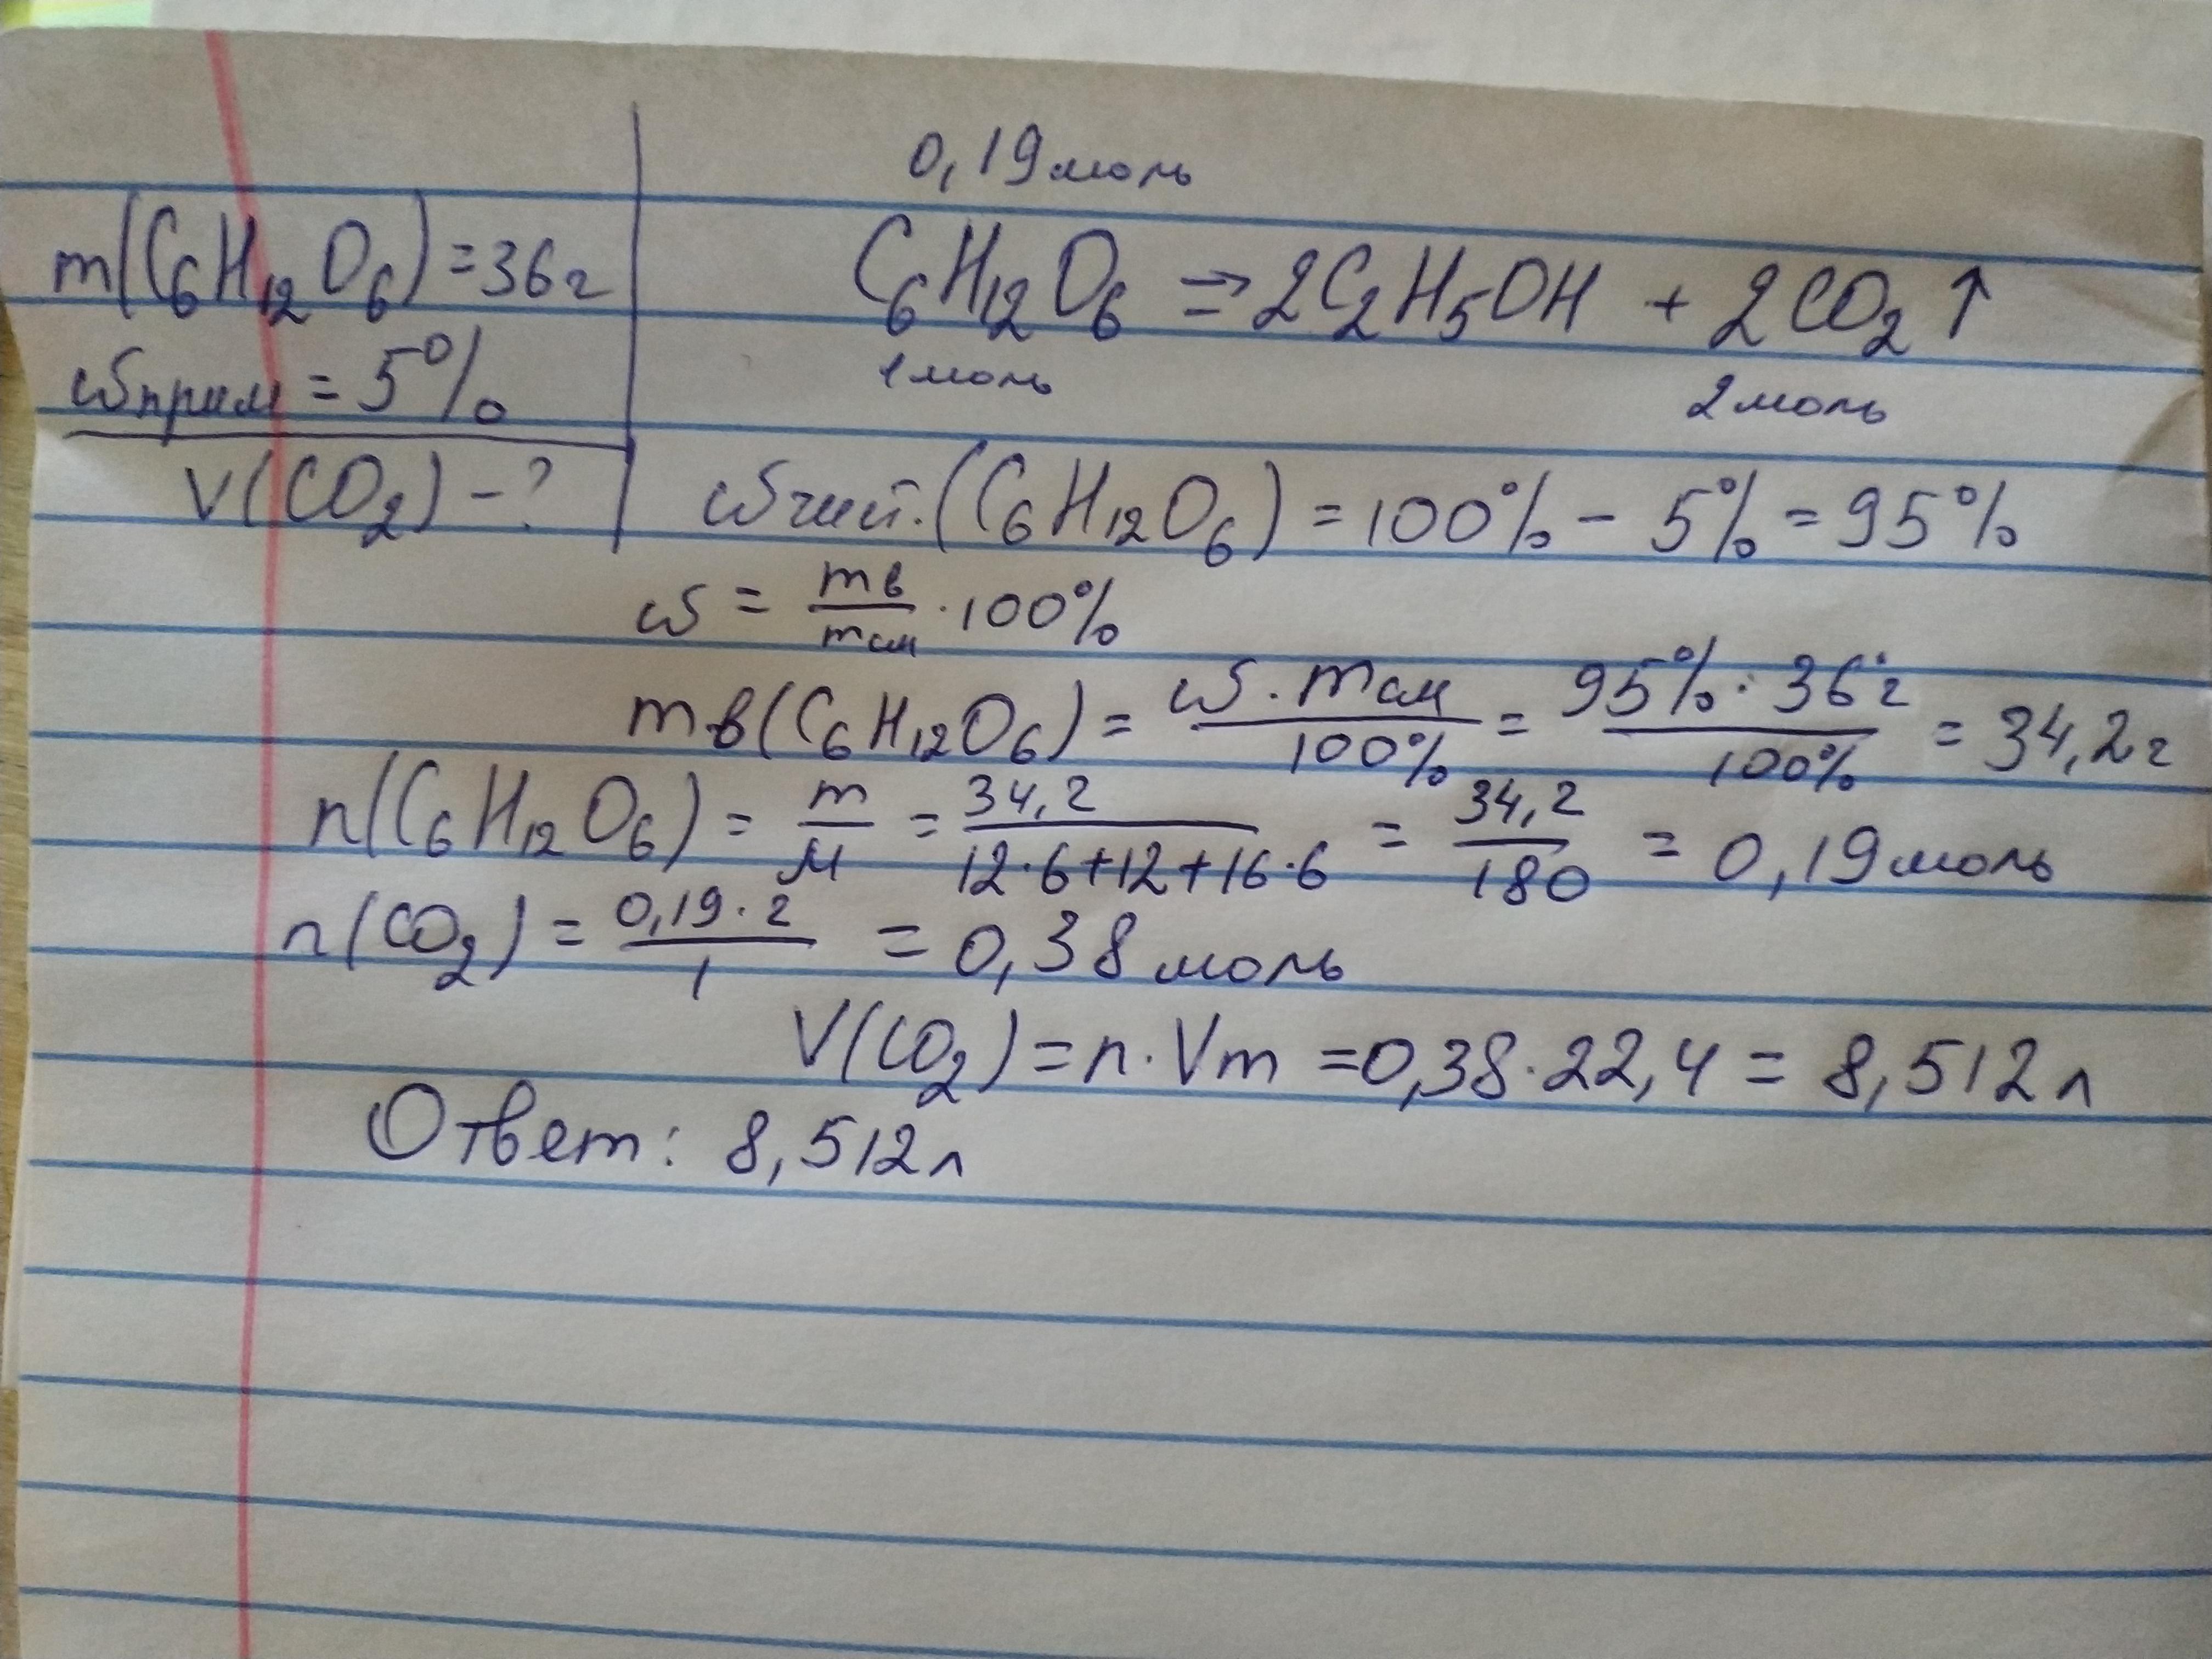 0,19 моль
m(C₆H₁₂O₆) = 36 г
C₆H₁₂O₆ ⇒ 2C₂H₅OH + 2CO₂↑
1 моль 2 моль
ω прим = 5%
V(CO₂) - ?
ω чист. (C₆H₁₂O₆) = 100% - 5% = 95%
ω = mв/mсм · 100%
mв(C₆H₁₂O₆) = ω · mсм/100% = 95% · 36 г/100% = 34,2 г
n(C₆H₁₂O₆) = m/M = 34,2/12·6+12+16·6 = 34,2/180 = 0,19 моль
n(CO₂) = 0,19·2/1 = 0,38 моль
V(CO₂) = n · Vm = 0,38 · 22,4 = 8,512 л
Ответ: 8,512 л